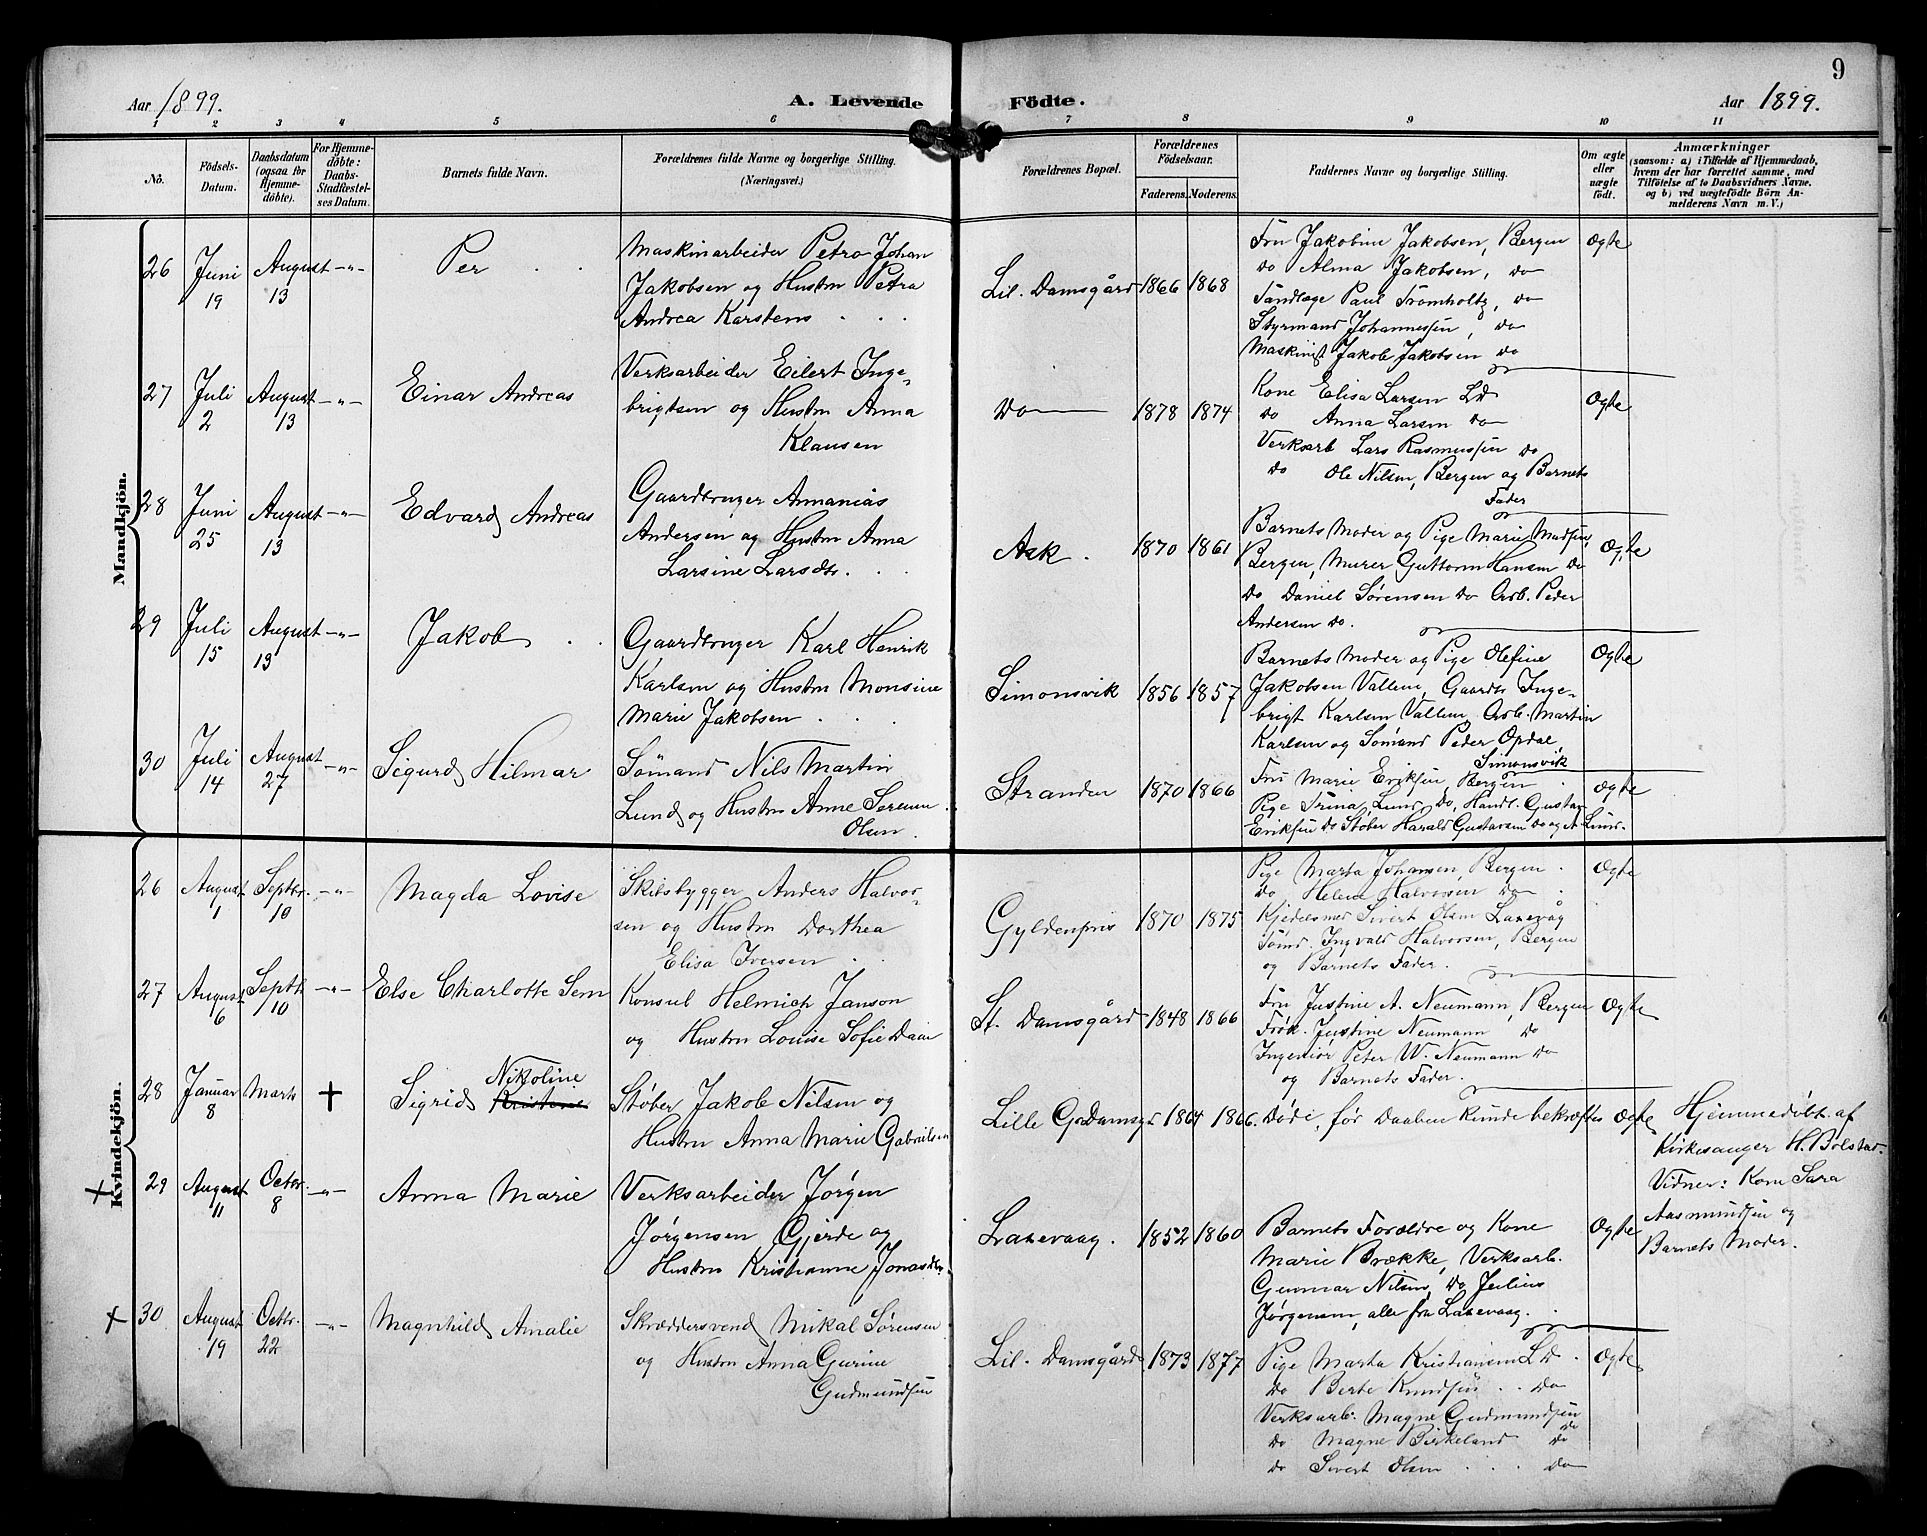 9
Aar 1899.
A. Levende Födte.
Aar 1899.
1 2 3 4 5 6 7 8 9 10 11
No.
Födsels-
Datum.
Daabsdatum
(ogsaa for
Hjemme-
döbte).
For Hjemme-
döbte:
Daabs-
Stadfæstel-
ses Datum.
Barnets fulde Navn.
Forældrenes fulde Navne og borgerlige Stilling.
(Næringsvei.)
Forældrenes Bopæl.
Forældrenes
Födselsaar.
Faderens. Moderens.
Faddernes Navne og borgerlige Stilling.
Om ægte
eller
uægte
födt.
Anmærkninger
(saasom: a) i Tilfælde af Hjemmedaab,
hvem der har forrettet samme, med
Tilföielse af to Daabsvidners Navne.
og b) ved uægtefödte Börn An-
melderens Navn m. V.)
Mandkjön.
26 Juni 19 August 13 -"- Per
Maskinarbeider Petro Johan
Jakobsen og Hustru Petra
Andrea Karstens
Lil. Damsgård 1866 1868
Fru Jakobine Jakobsen, Bergen
do Alma Jakobsen, do
Tandlæge Paul Tromholtz, do
Styrmand Johannessen, do
Maskinist Jakob Jakobsen do
Ogte
27 Juli 2 August 13 -"- Einar Andreas
Verksarbeider Eilert Inge-
brigtsen og Hustru Anna
Klausen
Do 1878 1874
Kone Elisa Larsen LD
do Anna Larsen do
Verksarb Lars Rasmussen do
do Ole Nilsen, Bergen og Barnets
Fader
Ogte
28 Juni 25 August 13 -"- Edvard Andreas
Gaardbruger Annanias
Andersen og Hustru Anna
Larsine Larsdtr.
Ask. 1870 1861
Barnets Moder og Pige Marie Madsen,
Bergen, Murer Guttorm Hansen do
do Daniel Sørensen do Arb. Peder
Andersen do.
Ogte
29 Juli 15 August 13 -"- Jakob
Gaardbruger Karl Henrik
Karlsen og Hustru Monsine
Marie Jakobsen
Simonsvik 1856 1857
Barnets Moder og Pige Olefine
Jakobsen Vallem, Gaardb Inge-
brigt Karlsen Vallem, Arb. Martin
Karlsen og Sømand Peder Opdal
Simonsvik
Ogte
30 Juli 14 August 27 -"- Sigurd Hilmar
Sømand Nils Martin
Lund og Hustru Anne Serene
Olsen.
Stranden 1870 1866
Fru Marie Eriksen, Bergen
Pige Trina Lund do, Handl. Gustav
Eriksen do Støber Harald Gustavsen do og A Lund.
Ogte
Kvindekjön.
26 August 1 Septbr. 10 -"- Magda Lovise
Skibsbygger Anders Halvor-
sen og Hustru Dorthea
Elisa Iversen
Gyldenpris 1870 1875
Pige Marta Johansen, Bergen.
do Helene Halvorsen do
Kjedelsmed Sivert Olsen Laxevåg
Sømd. Ingvald Halvorsen, Bergen
og Barnets Fader.
Ogte
27 August 6 Septb. 10 -"- Else Charlotte Sem
Konsul Helmich Janson
og Hustru Louise Sofie Daae
St. Damsgård 1848 1866
Fru Justine A. Neumann, Bergen
Frøk. Justine Neumann do
Ingeniør Peter W. Neumann do
og Barnets Fader.
Ogte
28 Januar 8 Marts + Sigrid Nikoline
Støber Jakob Nilsen og
Hustru Anna Marie Gabrielsen
Lille Damsgd 1864 1866.
Døde, før Daaben kunde bekræftes Ogte
Hjemmedøbt af
Kirkesanger H. Bolstad.
Vidner: Kone Sara
Aasmundsen og
Barnets Moder.
+ 29 August 11 Octbr. 8 -"- Anna Marie
Verksarbeider Jørgen
Jørgensen Gjerde og
Hustru Kristianne Jonasdtr.
Laxevaag. 1852 1860
Barnets Forældre og Kone
Marie Brække, Verksarb.
Gunnar Nilsen, do Julius
Jørgensen, alle fra Laxevaag.
Ogte
+ 30 August 19 Octbr. 22 -"- Magnhild Amalie
Skræddersvend Mikal Sørensen
og Hustru Anna Gurine
Gudmundsen
Lil. Damsgård 1873 1877
Pige Marta Kristiansen LD.
do Berte Knudsen do
Verksarb. Magne Gudmundsen do
do Magne Birkeland do
do Sivert Olsen do
Ogte